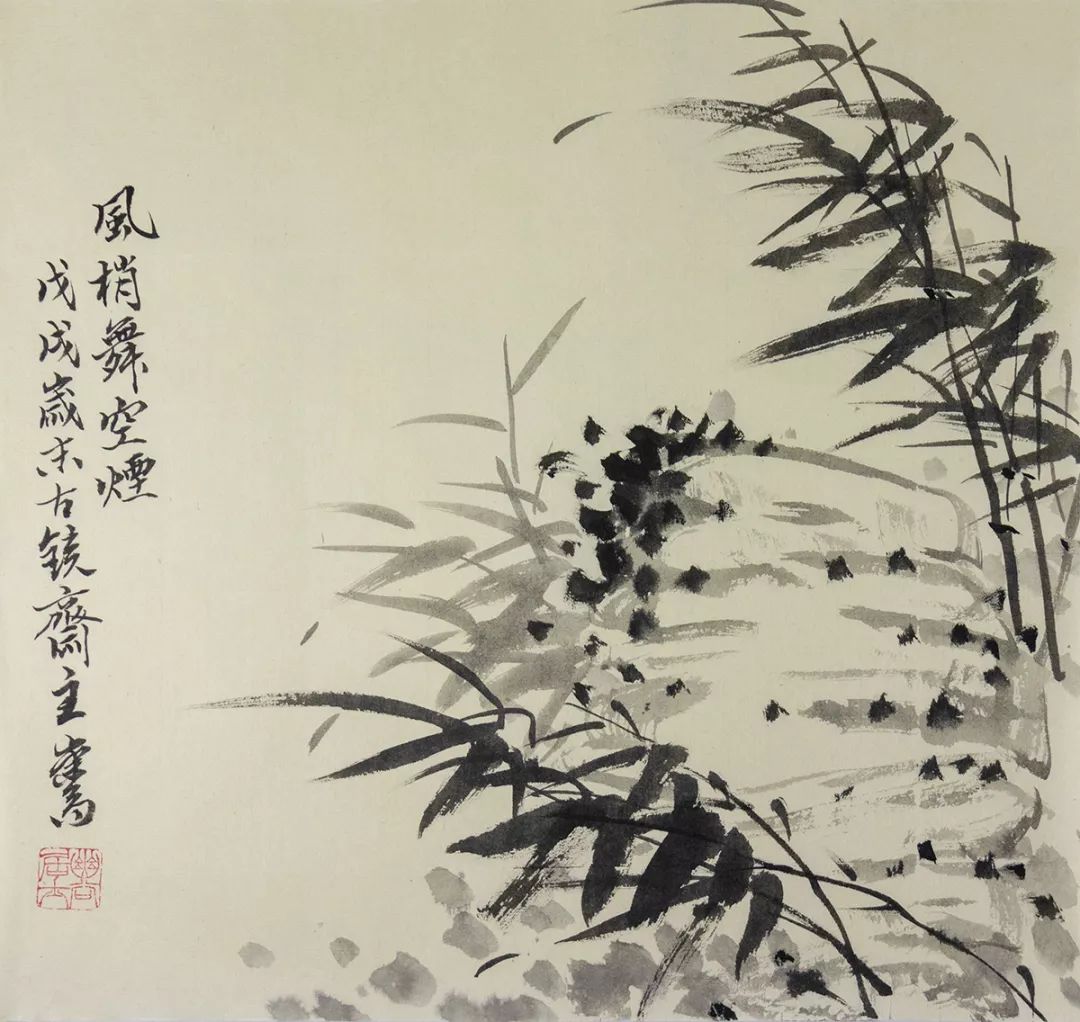 風梢舞空煙
戊戌歲末古鏡齋主嵩